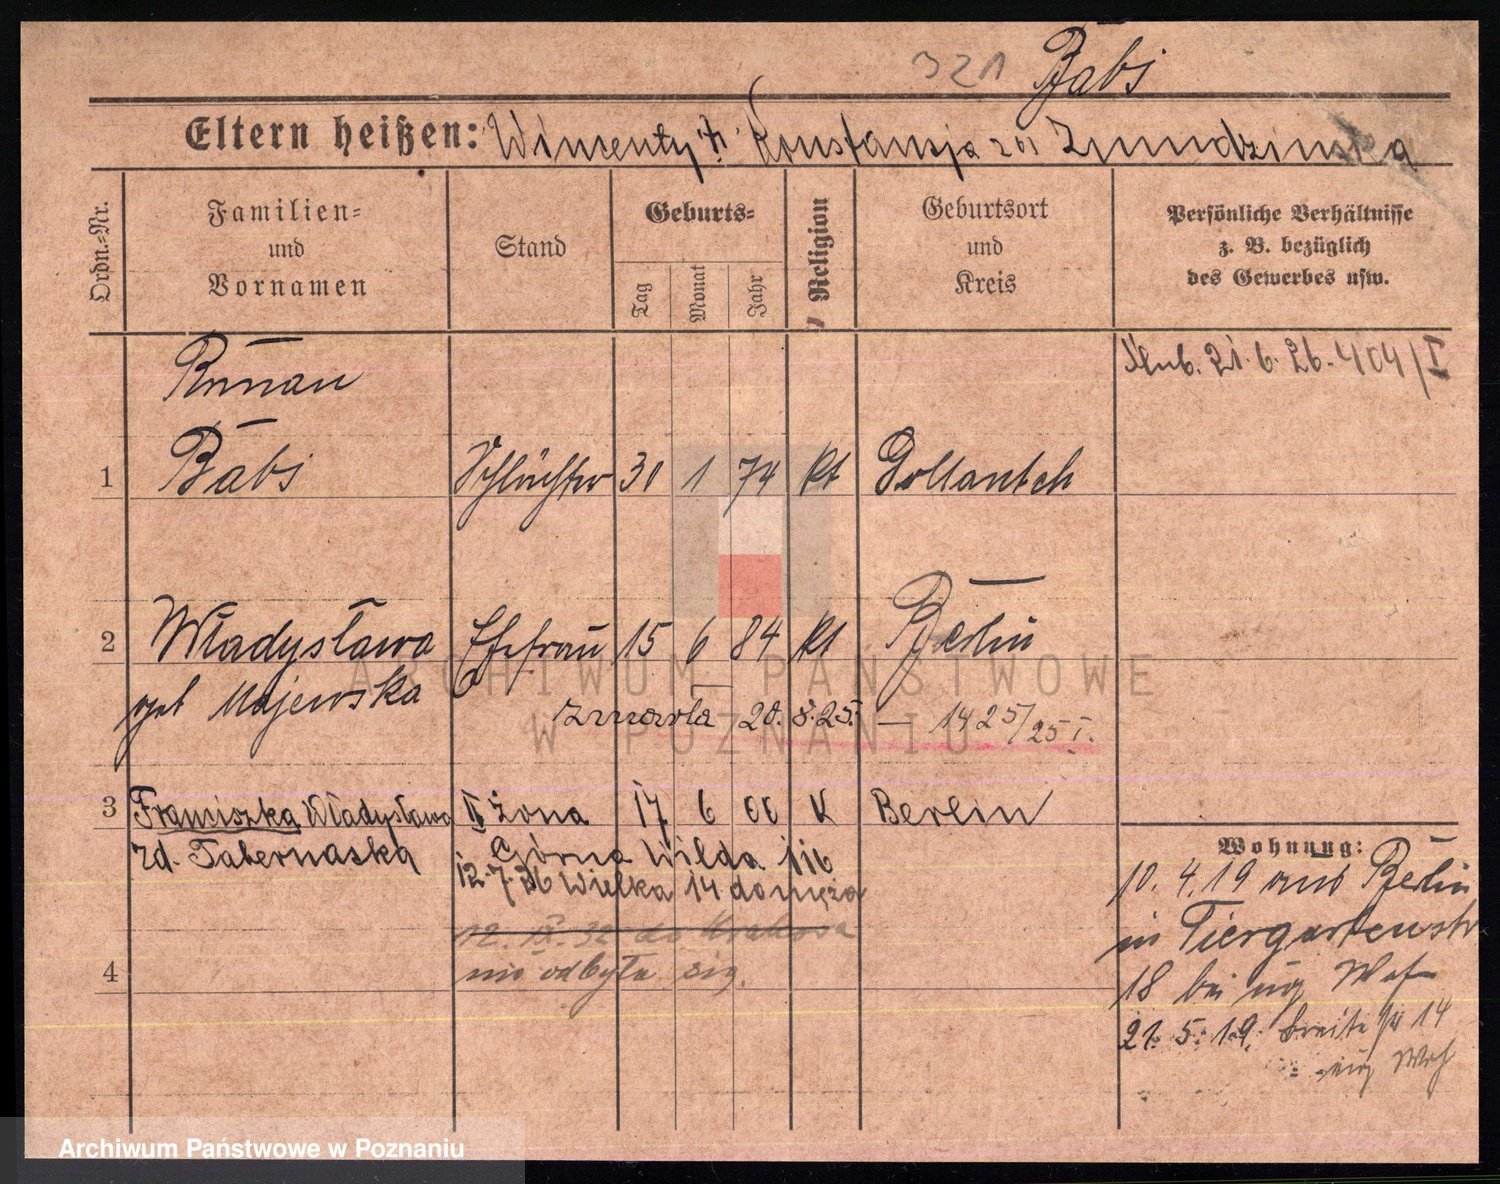 321 Babi
Eltern heißen: Wincenty i Konstancja
Ordn.=Nr.
Familien=
und
Vornamen
Stand
Geburts=
Tag
Monat
Jahr
Religion
Geburtsort
und
Kreis
Persönliche Verhältnisse
z. B. bezüglich
des Gewerbes usw.
21.6.26. 404/I
Roman
1 Babi 30 1 74 kt Gollantsch
2 Władysława Ehefrau 15 6 84 kt Berlin
geb Majewska
zmarła 20.8.25. — 1425/25 I.
3 Franciszka Władysława II żona 17 6 00 K Berlin
zd. Tabernaska
Górna Wilda 116
12.7.26 Wielka 14 do męża
02. IX. 32 do Krakowa
4 nie odbyła się.
Wohnung:
10.4.19 aus Berlin
in Tiergartenstr
18 bei
21.5.19. Breitestr 14
Archiwum Państwowe w Poznaniu
ARCHIWUM PAŃSTWOWE
W POZNANIU